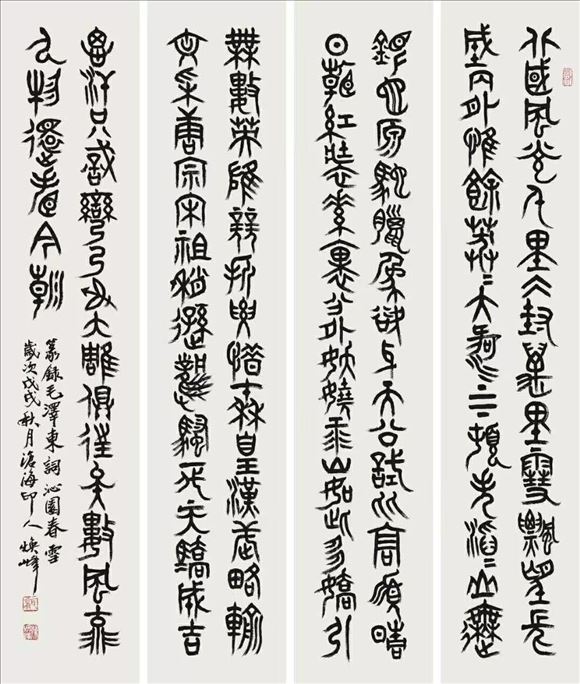 北國風光千里冰封萬里雪飄望長
城內外惟餘莽〻大河上下頓失滔〻山舞
銀蛇原馳臘象欲與天公試比高須晴
日看紅裝素裹分外妖嬈江山如此多嬌引
無數英雄競折腰惜秦皇漢武略輸
文采唐宗宋祖稍遜風騷一代天驕成吉
思汗只識彎弓射大雕俱往矣數風流
人物還看今朝
篆錄毛澤東詞沁園春雪
歲次戊戌秋月滄海印人煥峰